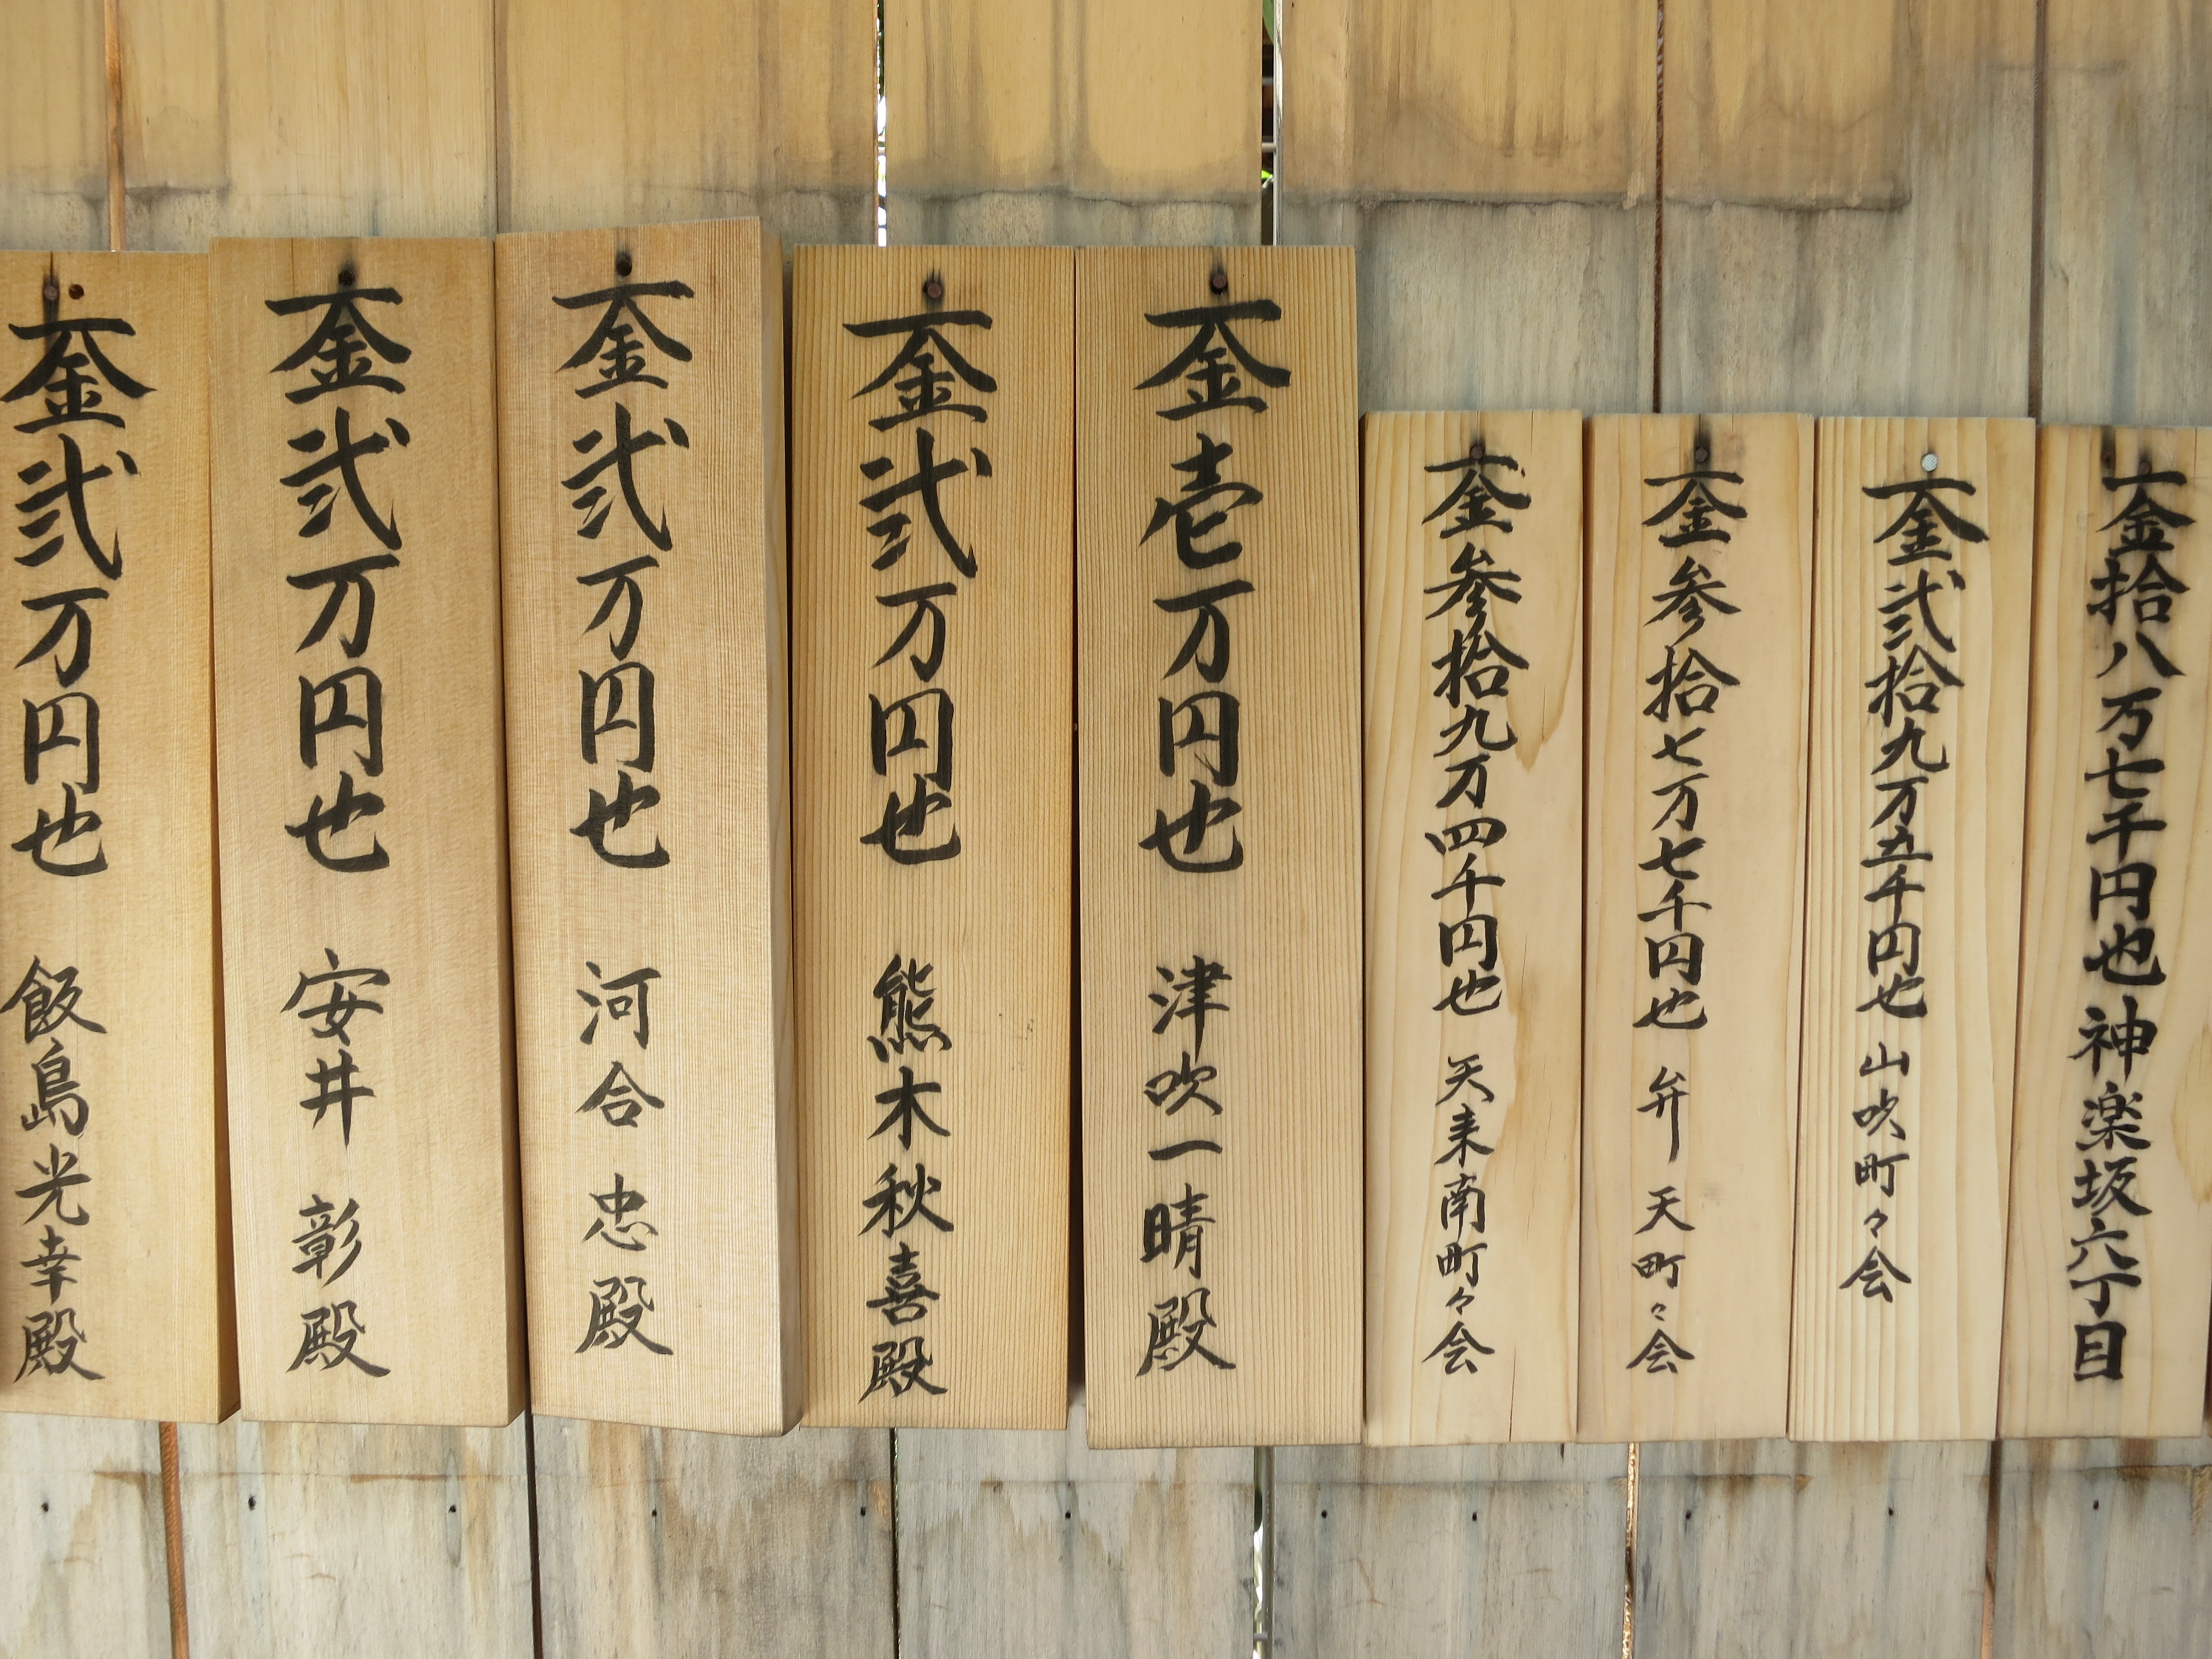 一金拾八万七千円也 神楽坂六丁目
一金弐拾九万五千円也 山吹町々会
一金参拾七万七千円也 弁天町々会
一金参拾九万四千円也 天来南町々会
一金壱万円也 津吹一晴殿
一金弐万円也 熊木秋喜殿
一金弐万円也 河合忠殿
一金弐万円也 安井彰殿
一金弐万円也 飯島光幸殿